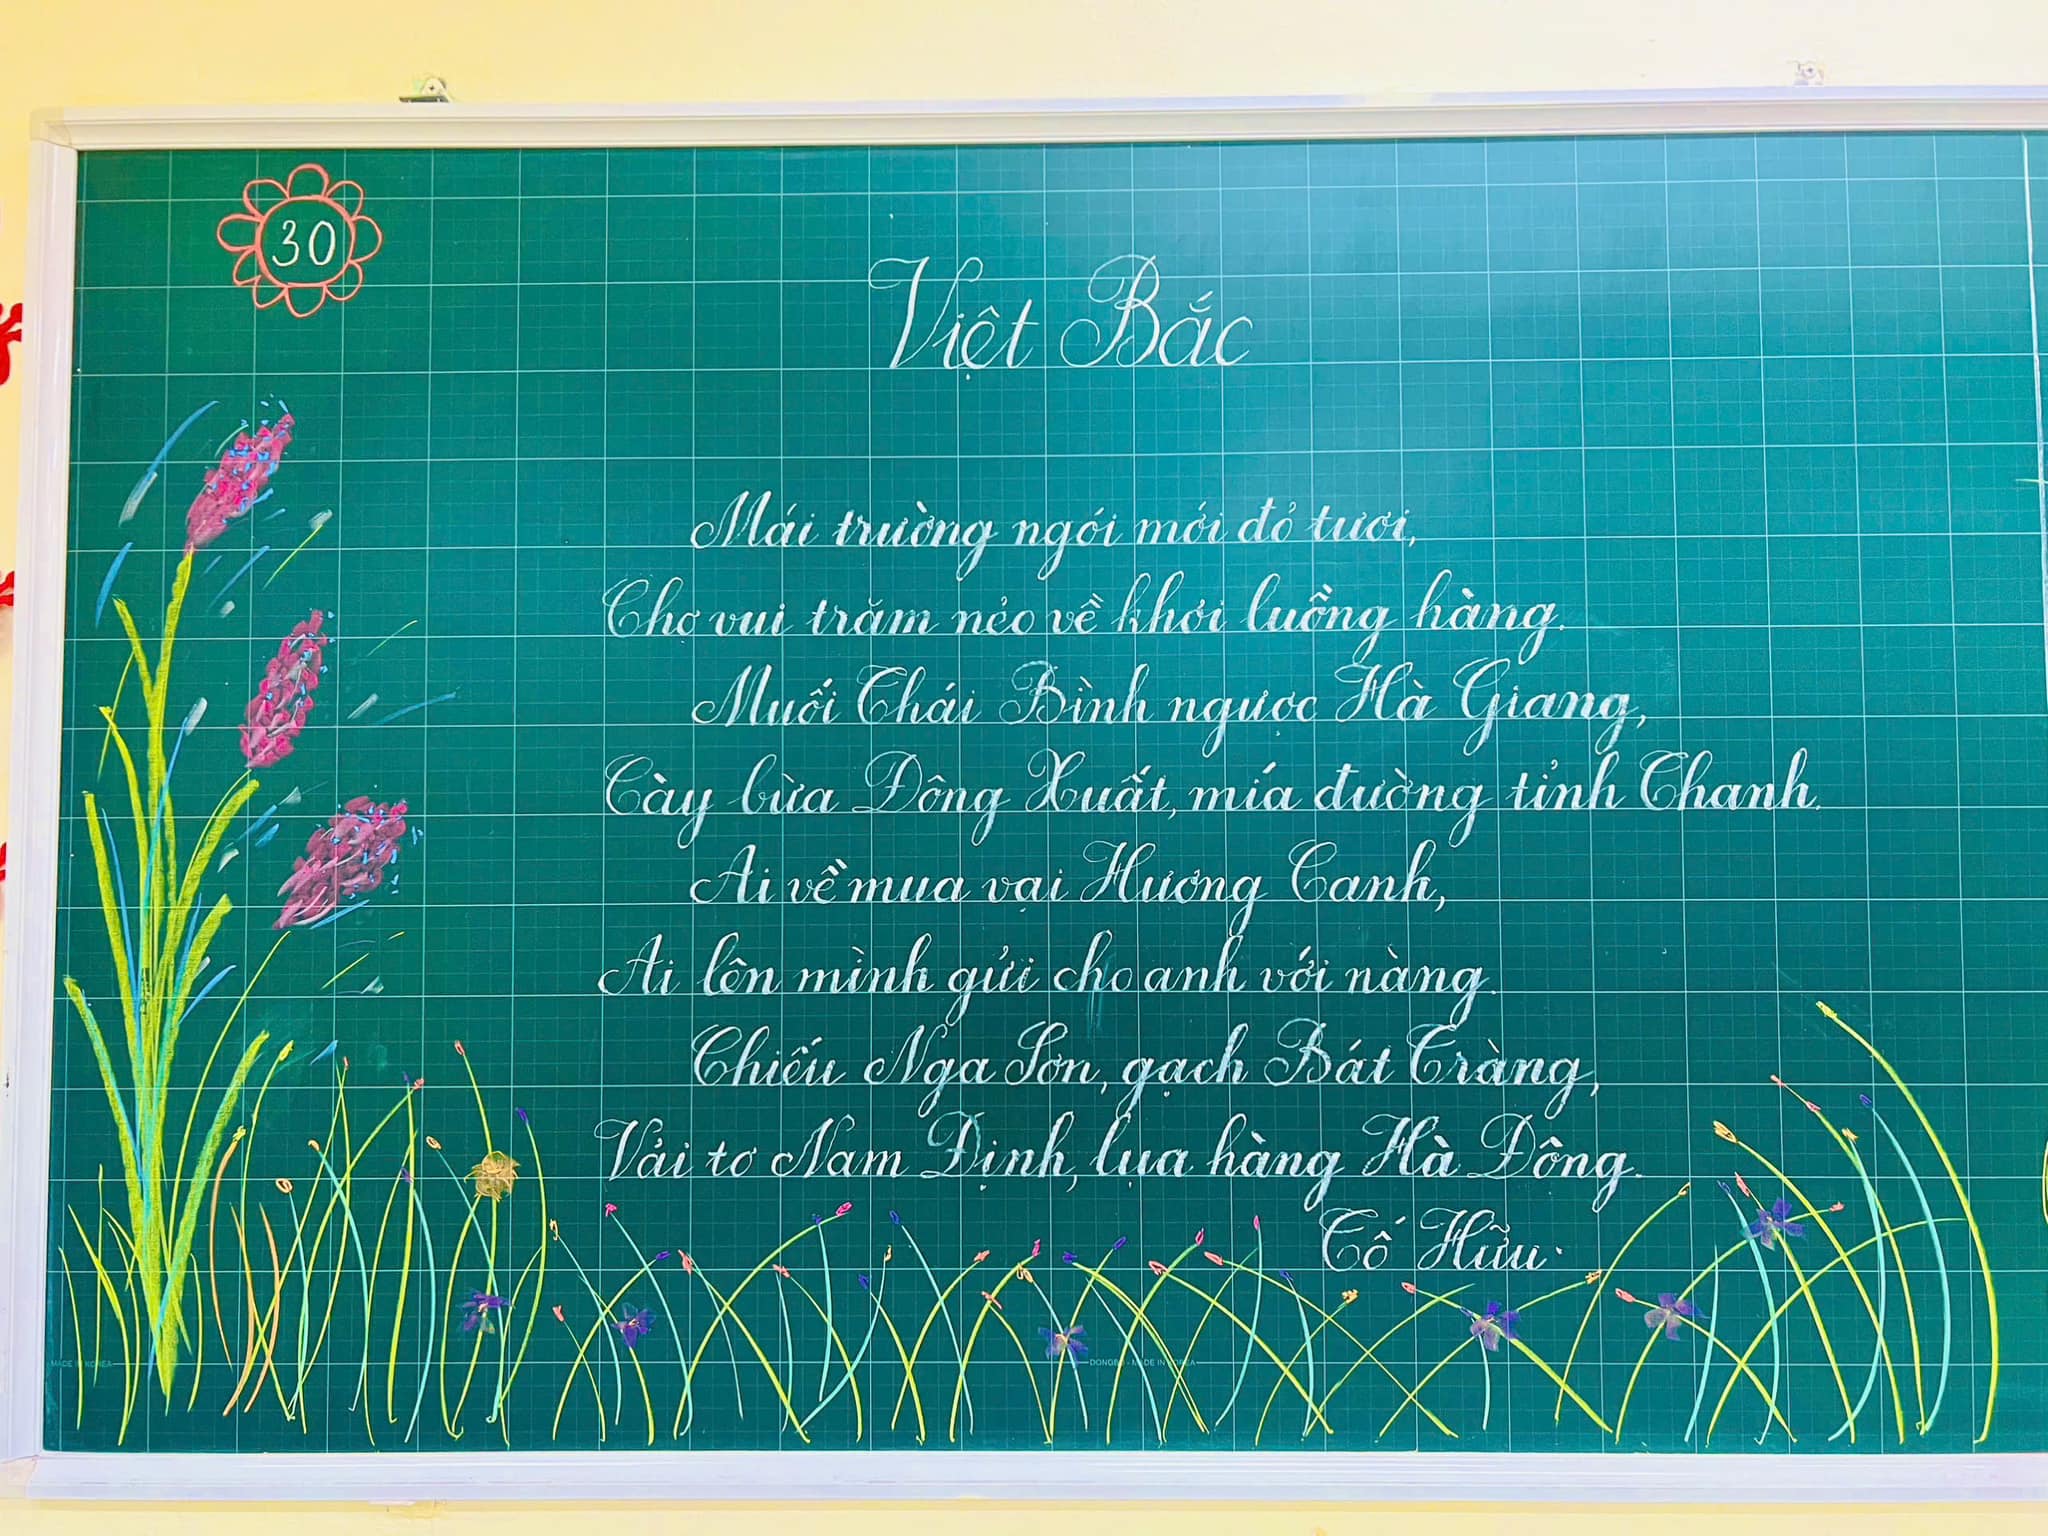 30
Việt Bắc
Mái trường ngói mới đỏ tươi,
Chợ vui trăm nẻo về khơi luồng hàng.
Muối Thái Bình ngược Hà Giang,
Cày bừa Đông Xuất, mía đường tỉnh Thanh.
Ai về mua vại Hương Canh,
Ai lên mình gửi cho anh với nàng.
Chiếu Nga Sơn, gạch Bát Tràng,
Vải tơ Nam Định, lụa hàng Hà Đông.
Tố Hữu.
MADE IN KOREA
DONGBU - MADE IN KOREA